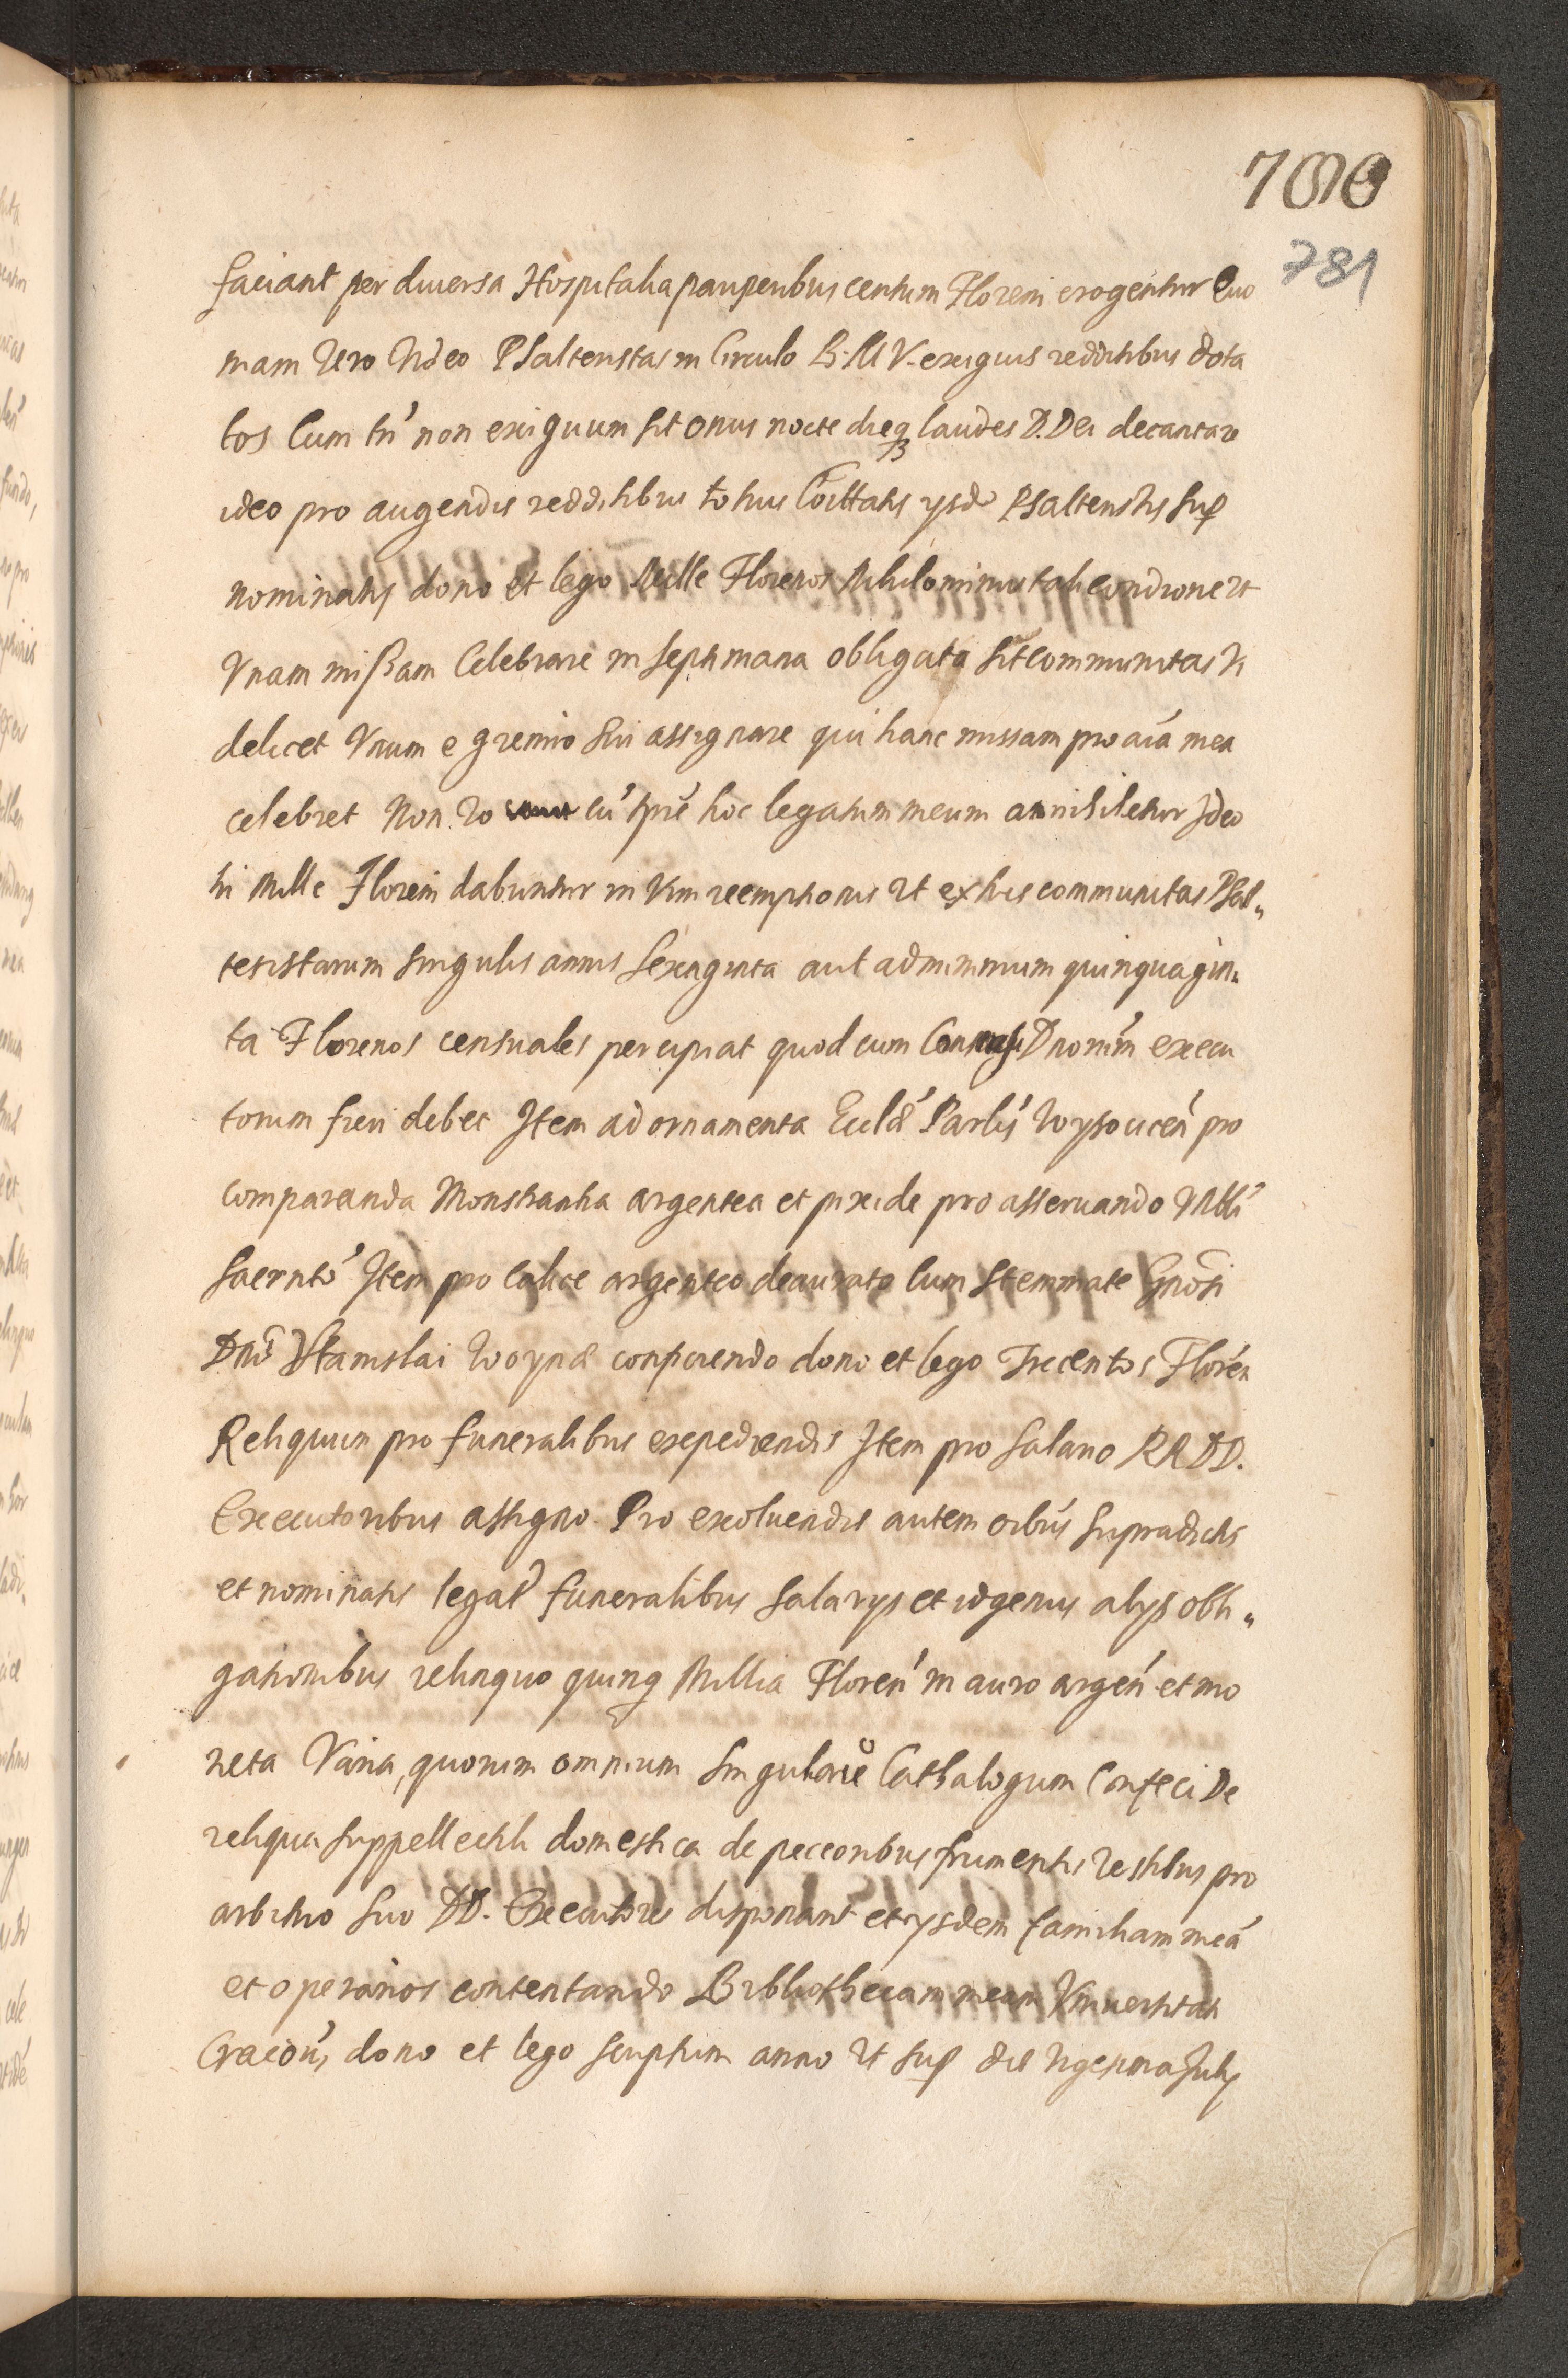 781
faciant per diuersa Hospitalia pauperibus centum Floreni erogentur Quo
niam Vero Video Psalteristas in Circulo B. M V. exiguis redditibus dota
tos Cum tn' non exiguum sit onus nocte dieq3 laudes D. Dei decantare
ideo pro augendis redditibus totius Coittatis ijsd Psalteristis sup
nominatis dono et lego Mille Florenos Nihilominus tali condicione Vt
Vnam missam Celebrare in Septimana obligata sit communitas Vi
delicet Vnum e gremio sui assignare qui hanc missam pro aiá mea
celebret Non Vo cu' tpre' hoc legatum meum annihiletur Ideo
hi Mille Floreni dabuntur in Vim reemptionis Vt ex his communitas Psal„
teristarum singulis annis Sexaginta aut ad minimum quinquagin„
ta Florenos censuales percipiat quod cum Dnorum execu
torum fieri debet Item ad ornamenta Eccl̃æ Parlis' Wysocicen' pro
comparanda Monstrantia argentea et pixide pro asseruando Vnbli'
Sacrnto' Item pro Calice argenteo deaurato Cum Stemmate Gnosi
Dni Stanislai Woynæ conficiendo dono et lego Trecentos Floren
Reliquum pro funeralibus expediendis Item pro Salario RR DD.
Executoribus assigno. Pro exoluendis autem oibus' supradictis
et nominatis legat' funeralibus Salarys et idgenus alys obli„
gationibus relinquo quinq Millia Floren' in auro argen' et mo
neta Varia, quorum omnium singulare Cathalogum Confeci De
reliqua suppellectili domestica de peccoribus frumentis Vestibus pro
arbitrio suo DD. Executores disponant et ijsdem familiam meá
et operarios contentando Bibliothecam meam Vniuersitati
Cracou', dono et lego scriptum anno Vt sup die Vigesima July